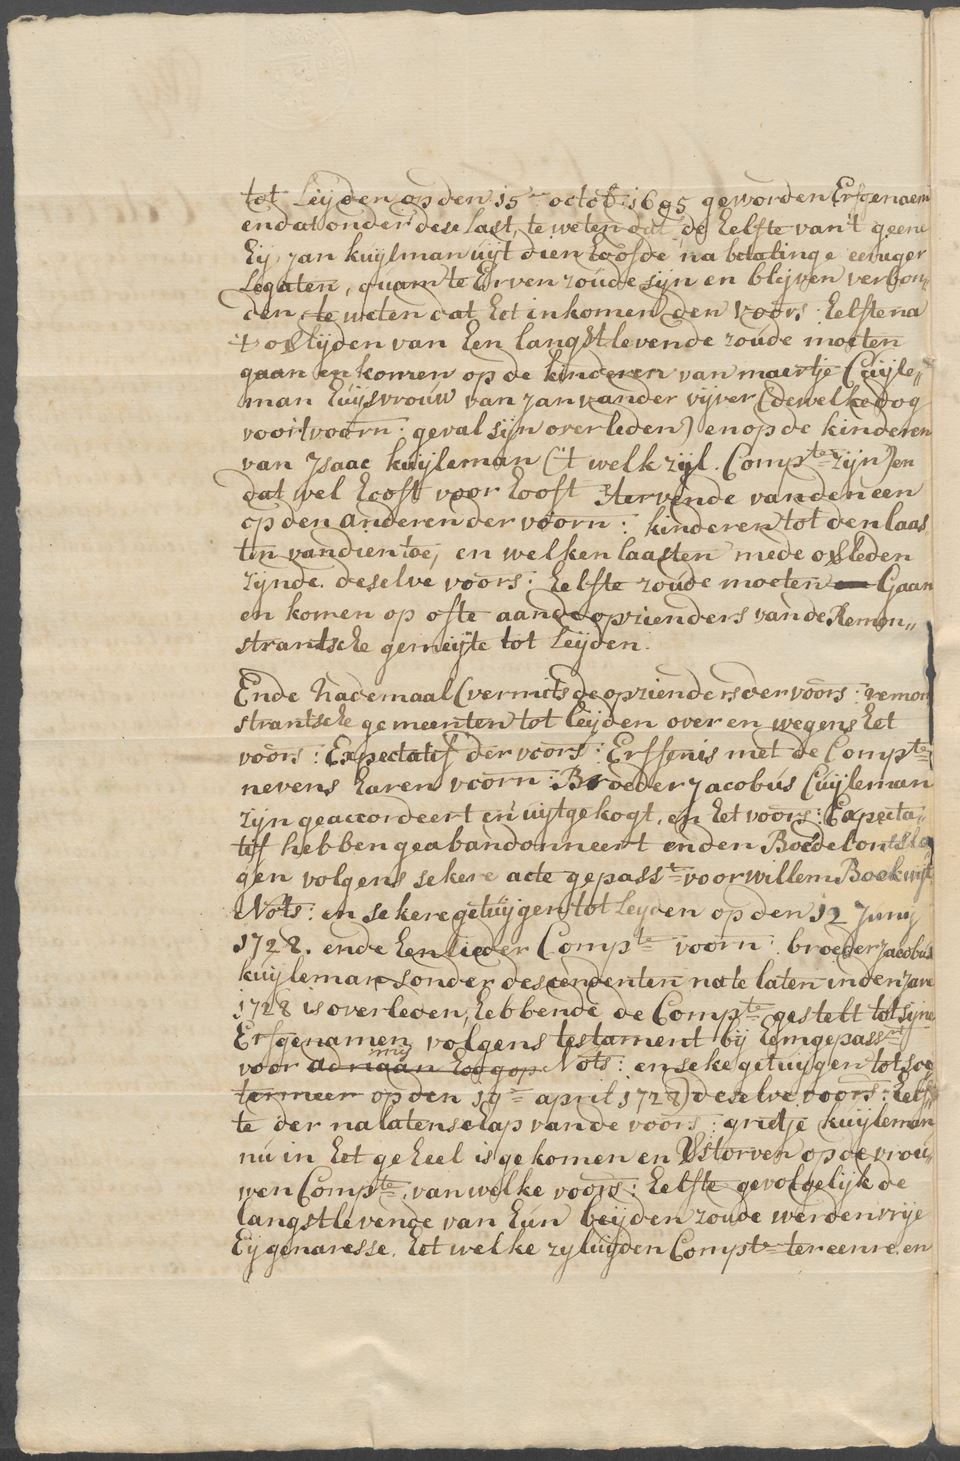 tot Leijden op den 15en octob: 1695 geworden Erfgenaem
en dat onder dese last, te weten dat de helfte van 't geene
hij, Jan Kuijlman uijt dien hoofde na betalinge eeniger
Legaten, quam te Erven zoude sijn en blijven verbon„
den, te weten dat het inkomen den voors: helfte na
't overlijden van hen langstlevende zoude moeten
gaan en komen op de kinderen van maertje Cuijle„
man huijsvrouw van Jan vander vijver (dewelke dog
voor 't voorn: geval sijn overleden) en op de kinderen
van Isaac kuijleman ('t welk zijl. Compten zijn) en
dat wel hooft voor hooft stervende van den een
op den anderen der voorn: kinderen tot den laas
ten van dien toe, en welken laasten mede overleden
zijnde. deselve voors: helfte zoude moeten Gaan
en komen op ofte aan de opzienders van de Remon„
strantsche gemeijte tot Leijden.
Ende Nademaal (vermits de opzienders der voors: remon
strantsche gemeenten tot Leijden over en wegens het
voors: Expectatif der voors: Erffenis met de Compten
nevens haren voorn: Broeder Jacobus Cuijleman
zijn geaccordeert en uijtgekogt, en het voors: Expecta„
tif hebben geabandonneert en den Boedel ontsla
gen volgens sekere acte gepasst voor willem Boekwijt
Nots: en sekere getuijgen tot Leyden op den 12 Junij
1728. ende henlieder Compte voorn: broeder Jacobus
kuijleman sonder descendenten na te laten in den Jare
1728 is overleden, hebbende de Compte gestelt tot sijne
Erfgenamen, volgens testament bij hem gepasst
voor adriaan hoogop mij Nots: en seke getuijgen tot soe
termeer op den 19en april 1728) deselve voors: helf„
te der nalatenschap van de voors: grietje kuijleman
nu in het geheel is gekomen en verstorven op de vrou„
wen Compte, van welke voors: helfte gevolgelijk de
langstlevende van hun beijden zoude werden vrije
Eijgenaresse. het welke zyluijden Compte ter eenre, en